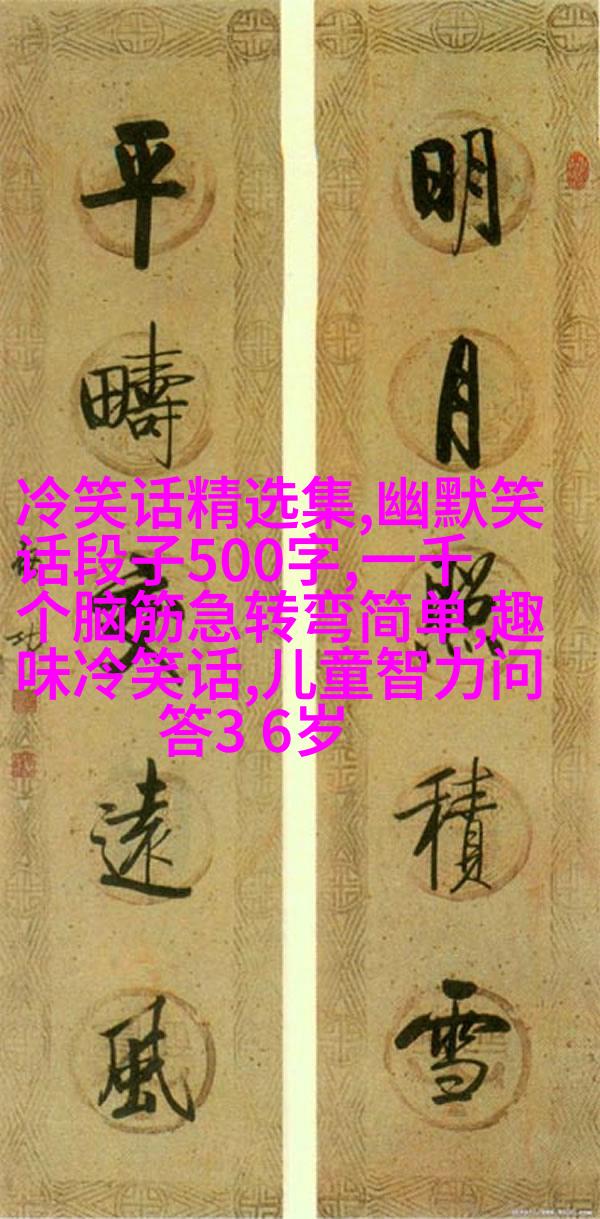 明月照積雪
平疇交遠風
冷笑话精选集,幽默笑
话段子500字,一千
个脑筋急转弯简单,趣
味冷笑话,儿童智力问
答3 6岁